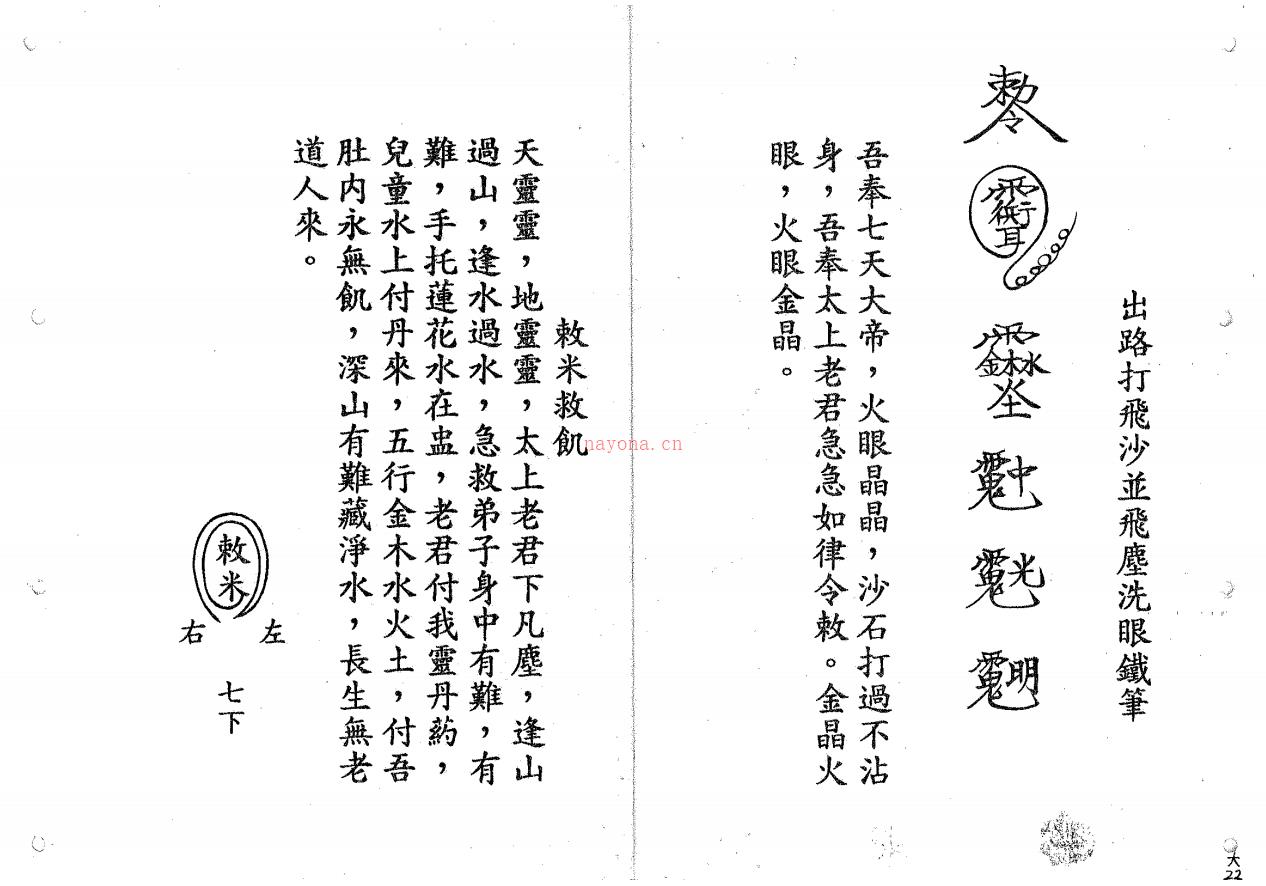 出路打飛沙並飛塵洗眼鐵筆
勅令
吾奉七天大帝，火眼晶晶，沙石打過不沾
身，吾奉太上老君急急如律令敕。金晶火
眼，火眼金晶。
敕米救飢
天靈靈，地靈靈，太上老君下凡塵，逢山
過山，逢水過水，急救弟子身中有難，有
難，手托蓮花水在盅，老君付我靈丹葯，
兒童水上付丹來，五行金木水火土，付吾
肚内永無飢，深山有難藏淨水，長生無老
道人來。
敕米
左
右
七下
nayona.cn
大
22